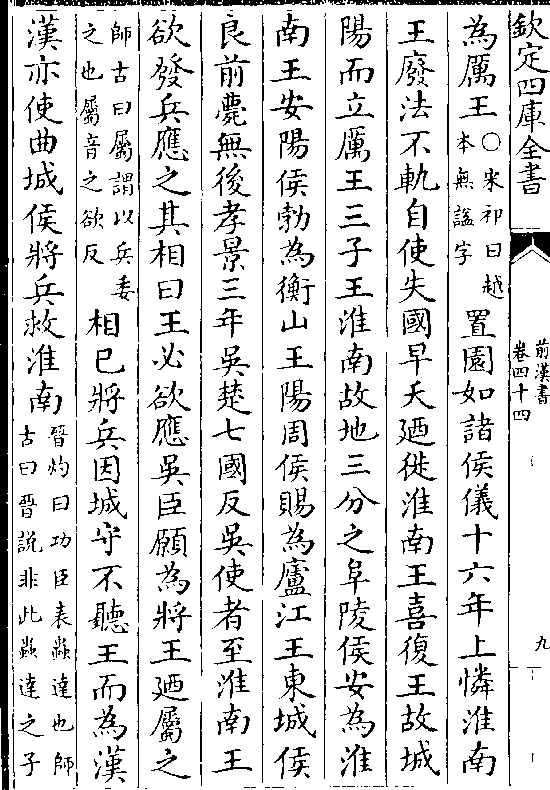 欽定四庫全書
前漢書
卷四十四
九
為厲王
○宋祁曰越
本無謚字
置園如諸侯儀十六年上憐淮南
王廢法不軌自使失國早夭廼徙淮南王喜復王故城
陽而立厲王三子王淮南故地三分之阜陵侯安為淮
南王安陽侯勃為衡山王陽周侯賜為廬江王東城侯
良前薨無後孝景三年吳楚七國反吳使者至淮南王
欲發兵應之其相曰王必欲應吳臣願為將王廼屬之
師古曰屬謂以兵委
之也屬音之欲反
相已將兵因城守不聽王而為漢
漢亦使曲城侯將兵救淮南
晉灼曰功臣表蟲達也師
古曰晉說非此蟲達之子